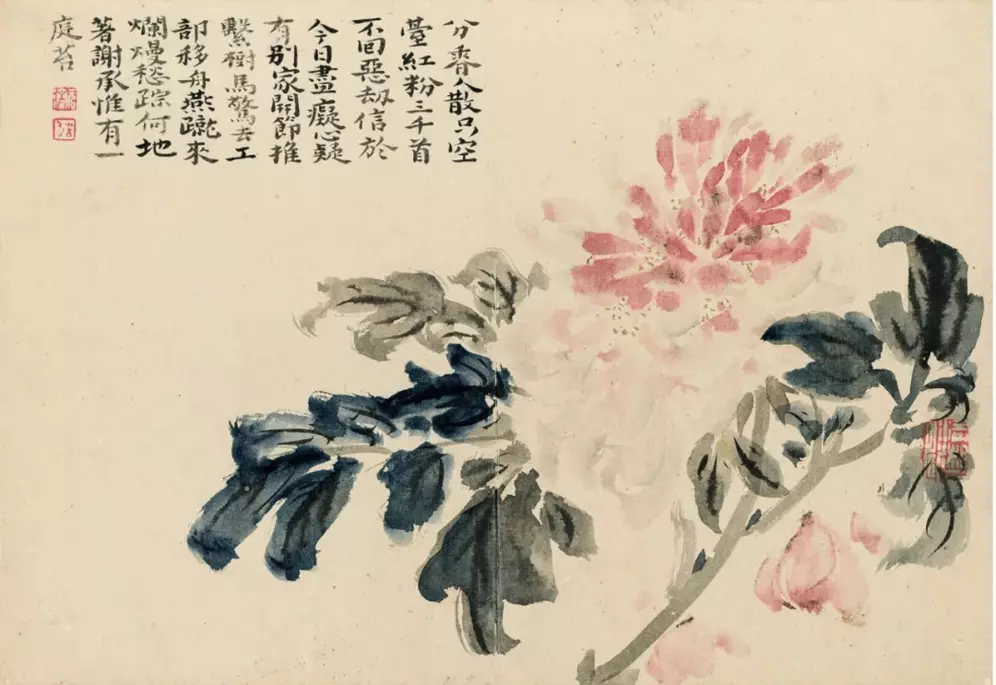 分香人散只空
臺紅粉三千首
不回惡劫信於
今日盡癡心疑
有別家開節推
繫樹馬驚去工
部移舟燕蹴來
爛熳愁踪何地
著謝承惟有一
庭苔